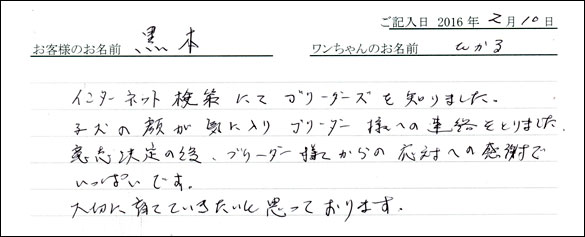 ご記入日 2016年 2月10日
お客様のお名前 黒本 ワンちゃんのお名前 ひかる
インターネット検策にてブリーダーズを知りました。
子犬の顔が気に入りブリーダー様への連絡をとりました。
意志決定の後、ブリーダー様からの応対への感謝で
いっぱいです。
大切に育てていきたいと思っております。